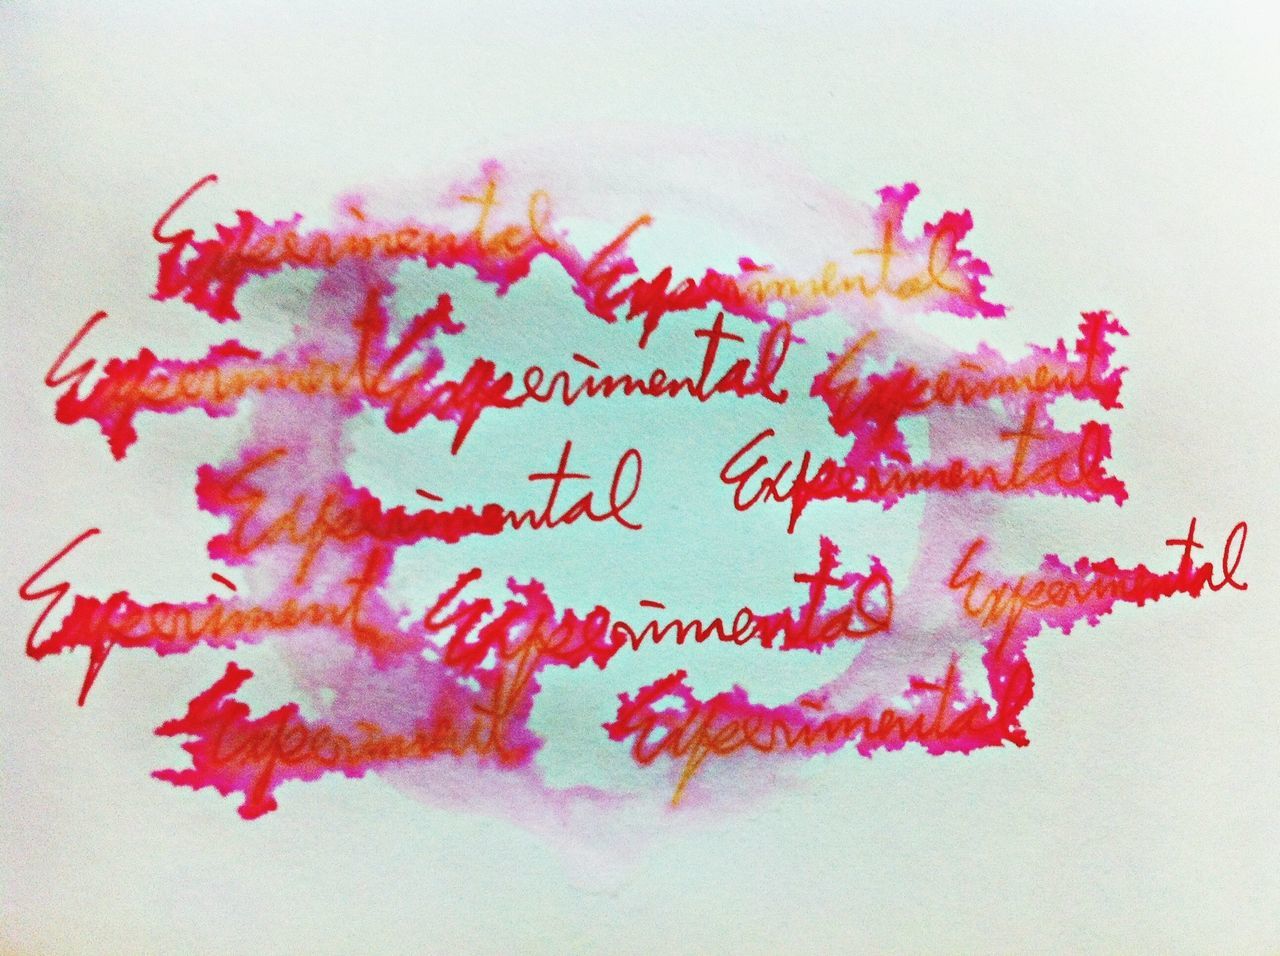 Experimental Experimental
Experiment Experimental Experiment
Experimental Experimental
Experiment Experimental Experimental
Experiment Experimental